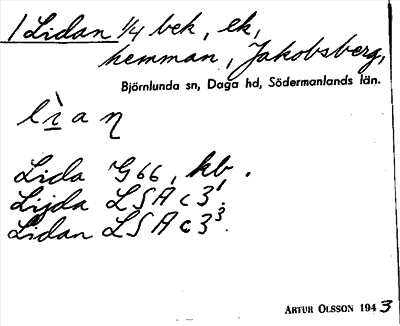 1 Lidan 1/4 bek, ek,
hemman, Jakobsberg,
Björnlunda sn, Daga hd, Södermanlands län.
lìaη
Lida G66, kb.
Lijda LSA c 3¹.
Lidan LSA c 3³.
ARTUR OLSSON 1943